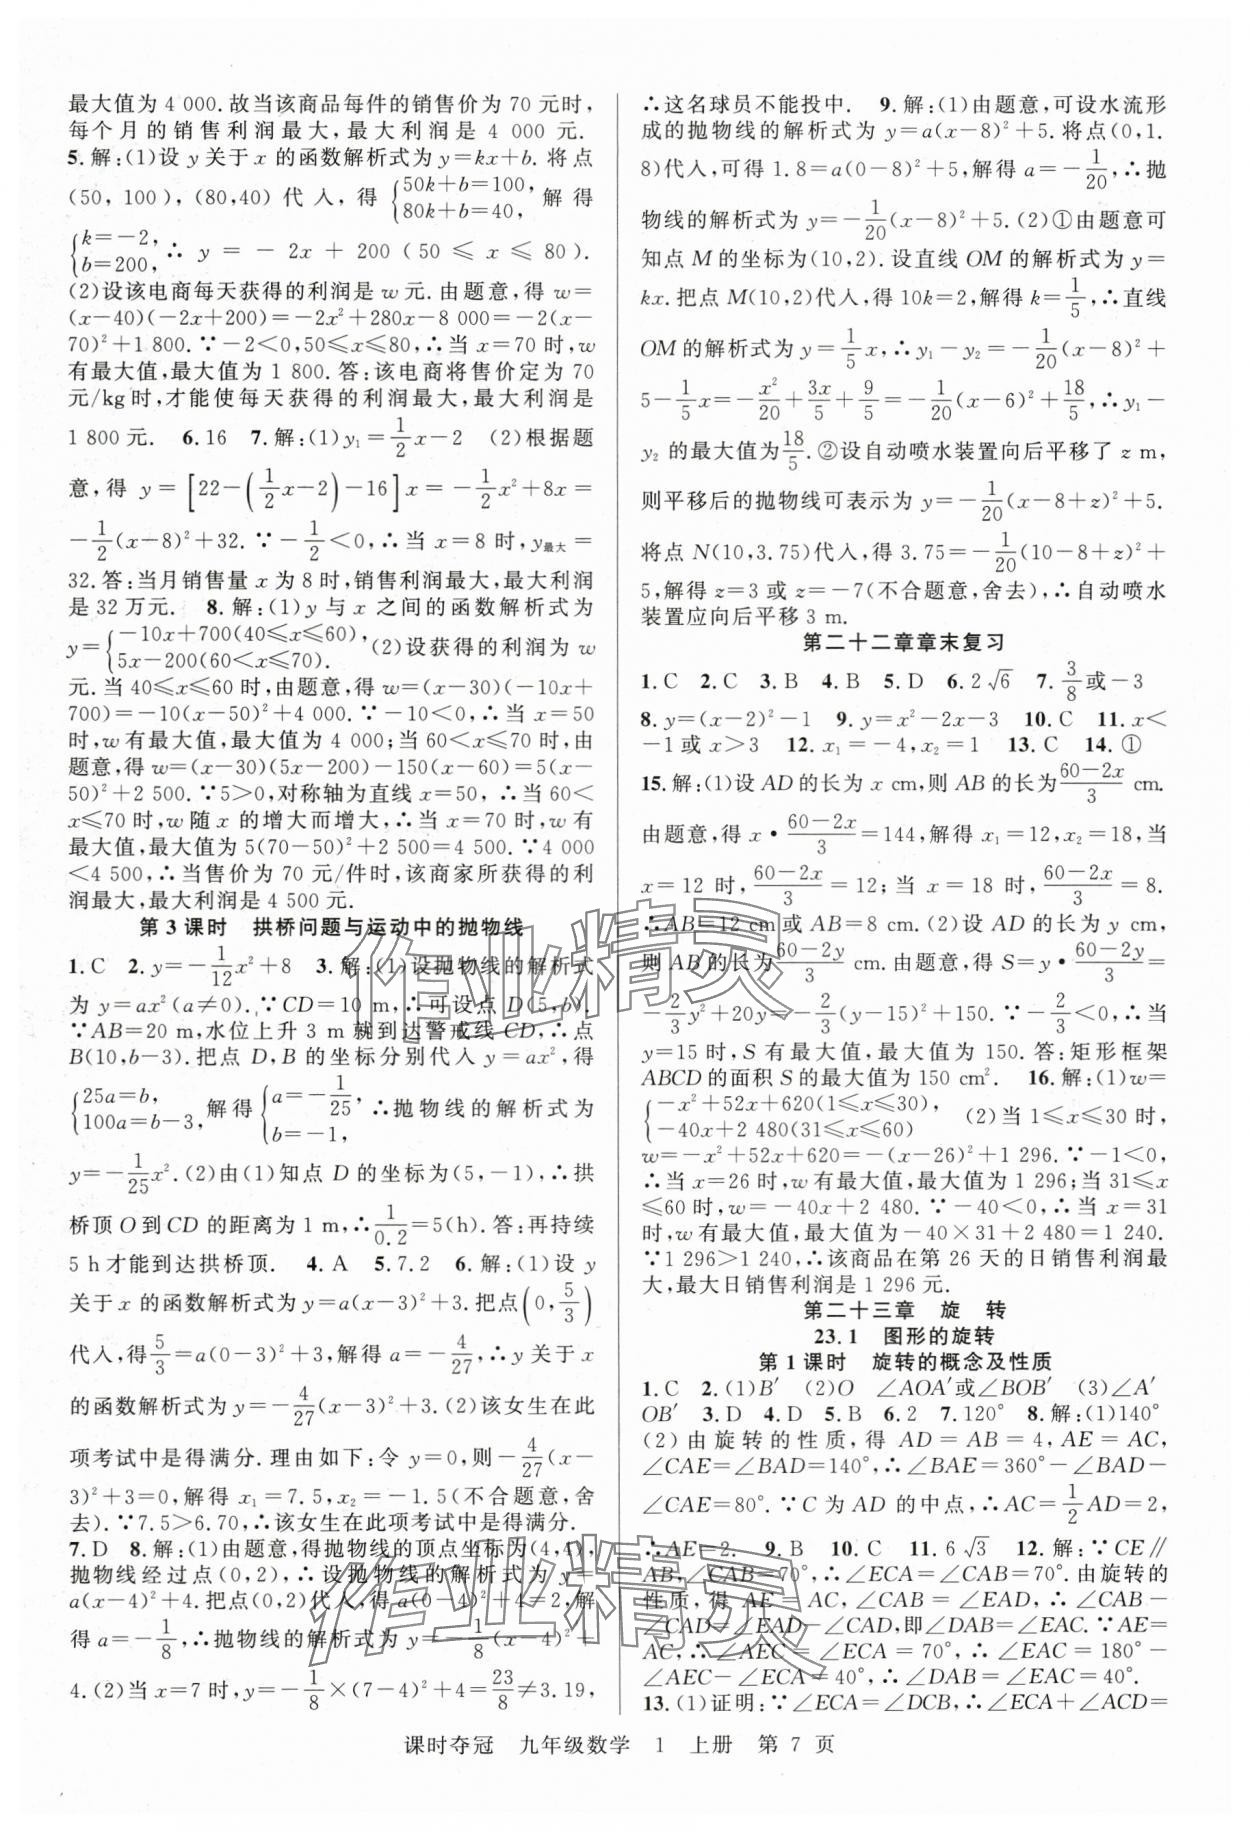 最大值为 4 000. 故当该商品每件的销售价为 70 元时,
每个月的销售利润最大,最大利润是 4 000 元.
5.解:(1)设 y 关于 x 的函数解析式为 y=kx+b. 将点
(50, 100), (80,40) 代入, 得 {50k+b=100, 80k+b=40, 解得
{k=-2, b=200, ∴ y = - 2x + 200 (50 ≤ x ≤ 80).
(2)设该电商每天获得的利润是 w 元.由题意,得 w=
(x-40)(-2x+200)=-2x²+280x-8 000=-2(x-
70)²+1 800.∵-2<0,50≤x≤80,∴当 x=70 时,w
有最大值,最大值为 1 800.答:该电商将售价定为 70
元/kg时,才能使每天获得的利润最大,最大利润是
1 800元. 6.16 7.解:(1)y₁=1/2x-2 (2)根据题
意, 得 y = [22-(1/2x-2)-16]x = -1/2x²+8x=
-1/2(x-8)²+32.∵-1/2<0,∴当 x=8 时,y最大=
32.答:当月销售量 x 为 8 时,销售利润最大,最大利润
是 32万元. 8.解:(1)y 与 x 之间的函数解析式为
y={-10x+700(40≤x≤60), 5x-200(60<x≤70). (2)设获得的利润为 w
元.当 40≤x≤60 时,由题意,得 w=(x-30)(-10x+
700)=-10(x-50)²+4 000.∵-10<0,∴当 x=50
时,w 有最大值,最大值为 4 000;当 60<x≤70 时,由
题意,得 w=(x-30)(5x-200)-150(x-60)=5(x-
50)²+2 500.∵5>0,对称轴为直线 x=50,∴当 60<
x≤70 时,w 随 x 的增大而增大,∴当 x=70 时,w 有
最大值,最大值为 5(70-50)²+2 500=4 500.∵4 000
<4 500,∴当售价为 70 元/件时,该商家所获得的利
润最大,最大利润是 4 500元.
第 3 课时 拱桥问题与运动中的抛物线
1.C 2.y=-1/12x²+8 3.解:(1)设抛物线的解析式
为 y=ax²(a≠0).∵CD=10 m,∴可设点 D(5,b).
∵AB=20 m,水位上升 3 m 就到达警戒线 CD,∴点
B(10,b-3).把点 D,B 的坐标分别代入 y=ax²,得
{25a=b, 100a=b-3, 解得 {a=-1/25, b=-1, ∴抛物线的解析式为
y=-1/25x².(2)由(1)知点 D 的坐标为(5,-1),∴拱
桥顶 O 到CD 的距离为 1 m,∴1/0.2=5(h).答:再持续
5 h才能到达拱桥顶. 4.A 5.7.2 6.解:(1)设 y
关于 x 的函数解析式为 y=a(x-3)²+3.把点(0,5/3)
代入,得5/3=a(0-3)²+3,解得 a=-4/27,∴y 关于 x
的函数解析式为 y=-4/27(x-3)²+3.(2)该女生在此
项考试中是得满分.理由如下:令 y=0,则-4/27(x-
3)²+3=0,解得 x₁=7.5,x₂=-1.5(不合题意,舍
去).∵7.5>6.70,∴该女生在此项考试中是得满分.
7.D 8.解:(1)由题意,得抛物线的顶点坐标为(4,4),
抛物线经过点(0,2),∴设抛物线的解析式为 y=
a(x-4)²+4.把点(0,2)代入,得 a(0-4)²+4=2,解
得 a=-1/8,∴抛物线的解析式为 y=-1/8(x-4)²+
4.(2)当 x=7 时,y=-1/8×(7-4)²+4=23/8≠3.19,
∴这名球员不能投中. 9.解:(1)由题意,可设水流形
成的抛物线的解析式为 y=a(x-8)²+5.将点(0,1.
8)代入,可得 1.8=a(0-8)²+5,解得 a=-1/20,∴抛
物线的解析式为 y=-1/20(x-8)²+5.(2)①由题意可
知点 M 的坐标为(10,2).设直线 OM 的解析式为 y=
kx.把点 M(10,2)代入,得 10k=2,解得 k=1/5,∴直线
OM 的解析式为 y=1/5x,∴y₁-y₂=-1/20(x-8)²+
5-1/5x=-x²/20+3x/5+9/5=-1/20(x-6)²+18/5,∴y₁-
y₂ 的最大值为18/5.②设自动喷水装置向后平移了 z m,
则平移后的抛物线可表示为 y=-1/20(x-8+z)²+5.
将点 N(10,3.75)代入,得 3.75=-1/20(10-8+z)²+
5,解得 z=3 或 z=-7(不合题意,舍去),∴自动喷水
装置应向后平移 3 m.
第二十二章章末复习
1.C 2.C 3.B 4.B 5.D 6.2√6 7.3/8或-3
8.y=(x-2)²-1 9.y=x²-2x-3 10.C 11.x<
-1或 x>3 12.x₁=-4,x₂=1 13.C 14.①
15.解:(1)设 AD 的长为 x cm,则 AB 的长为(60-2x)/3 cm.
由题意,得 x·(60-2x)/3=144,解得 x₁=12,x₂=18,当
x=12 时,(60-2x)/3=12;当 x=18 时,(60-2x)/3=8,
∴AB=12 cm或 AB=8 cm.(2)设 AD 的长为 y cm,
则 AB 的长为(60-2y)/3 cm.由题意,得 S=y·(60-2y)/3=
-2/3y²+20y=-2/3(y-15)²+150.∵-2/3<0,∴当
y=15 时,S 有最大值,最大值为 150.答:矩形框架
ABCD 的面积 S 的最大值为 150 cm². 16.解:(1)w=
{-x²+52x+620(1≤x≤30), -40x+2 480(31≤x≤60) (2)当 1≤x≤30 时,
w=-x²+52x+620=-(x-26)²+1 296.∵-1<0,
∴当 x=26 时,w 有最大值,最大值为 1 296;当 31≤x
≤60 时,w=-40x+2 480.∵-40<0,∴当 x=31
时,w 有最大值,最大值为-40×31+2 480=1 240.
∵1 296>1 240,∴该商品在第 26 天的日销售利润最
大,最大日销售利润是 1 296 元.
第二十三章 旋 转
23.1 图形的旋转
第 1 课时 旋转的概念及性质
1.C 2.(1)B′ (2)O ∠AOA′或∠BOB′ (3)∠A′
OB′ 3.D 4.D 5.B 6.2 7.120° 8.解:(1)140°
(2)由旋转的性质,得 AD=AB=4,AE=AC,
∠CAE=∠BAD=140°,∴∠BAE=360°-∠BAD
-∠CAE=80°.∵C 为 AD 的中点,∴AC=1/2AD=2,
∴AE=2. 9.B 10.C 11.6√3 12.解:∵CE∥
AB,∠CAB=70°,∴∠ECA=∠CAB=70°.由旋转的
性质,得 AE=AC,∠CAB=∠EAD,∴∠CAB-
∠CAD=∠EAD-∠CAD,即∠DAB=∠EAC.∵AE=
AC,∴∠AEC=∠ECA=70°,∴∠EAC=180°-
∠AEC-∠ECA=40°,∴∠DAB=∠EAC=40°.
13.(1)证明:∵∠ECA=∠DCB,∴∠ECA+∠ACD=
课时夺冠 九年级数学 1 上册 第 7 页
作业精灵
作业精灵